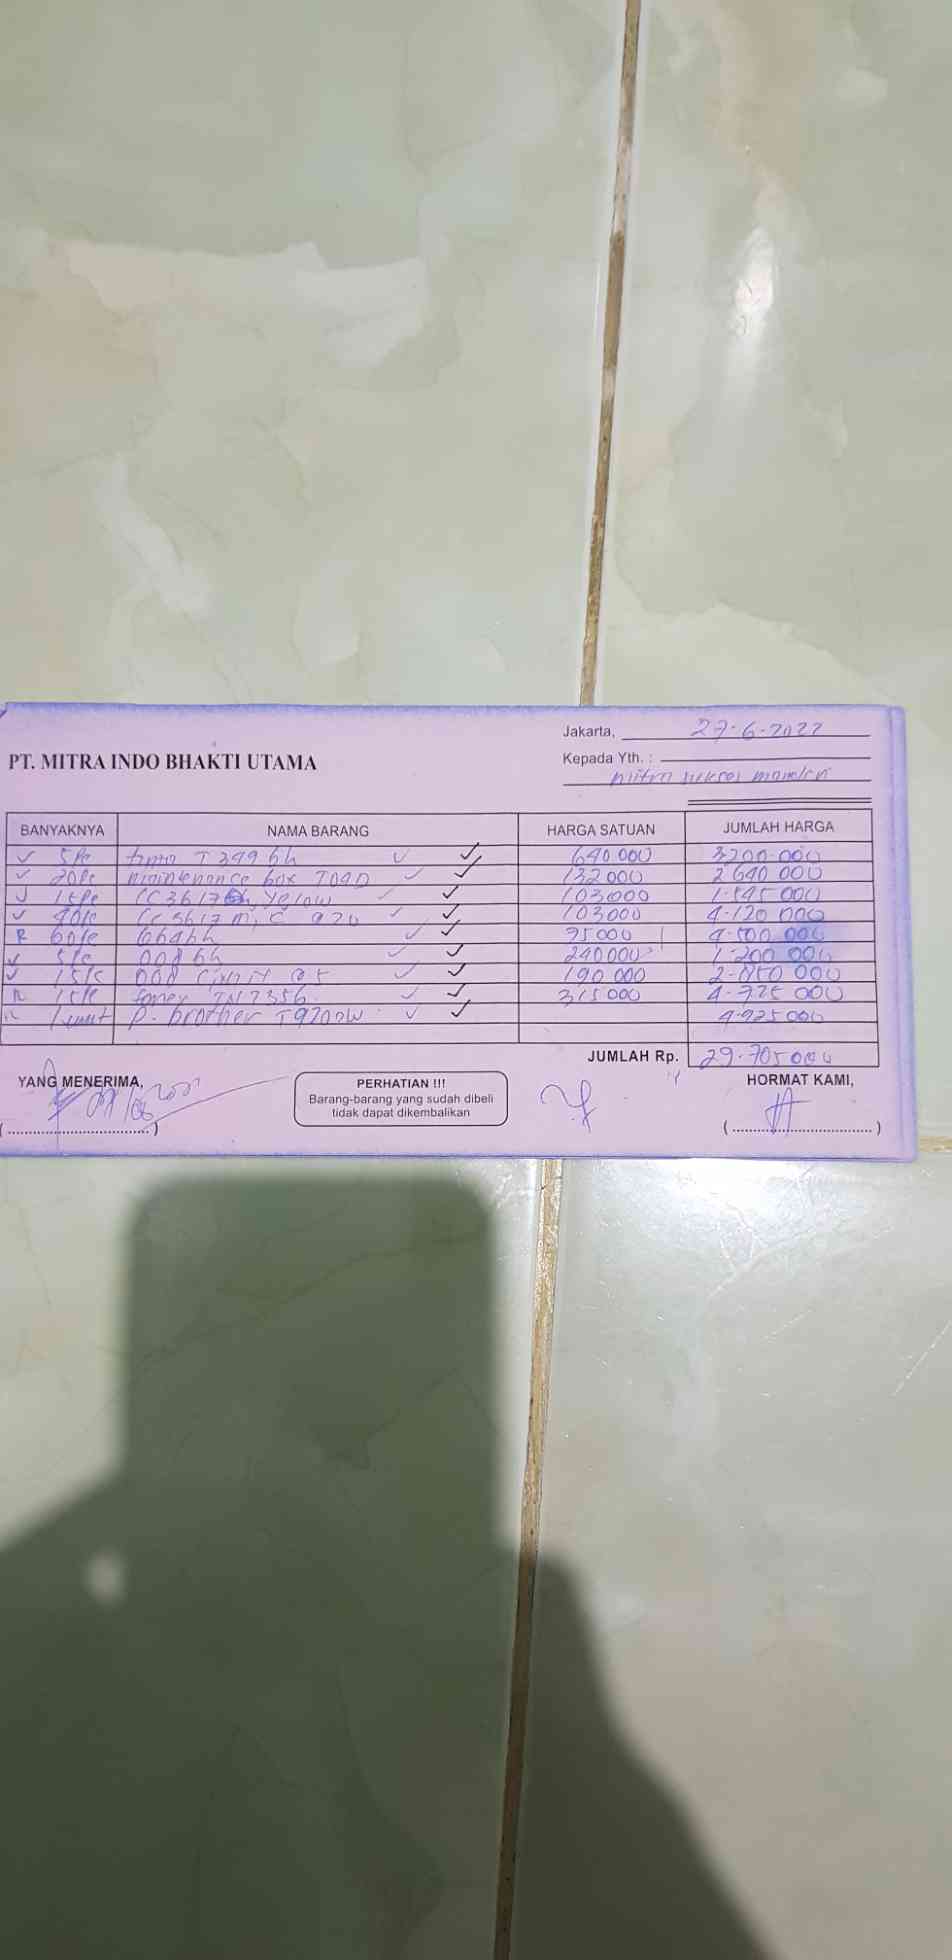 Jakarta, 27-6-2022
PT. MITRA INDO BHAKTI UTAMA
Kepada Yth. :
mitra sukses mandiri
BANYAKNYA NAMA BARANG HARGA SATUAN JUMLAH HARGA
5pc T349 bh 640 000 3200.000
20pc box T04D 132000 2 640 000
15pc yelow 103000 1.545 000
40pc m, c 103000 4.120 000
R 60pc 664bh 75000 4.500 000
5pc 008 bh 240000 1.200 000
15pc 008 190 000 2.850 000
R 15pc 315000 4.725 000
1unit p. brother T920DW 4.925 000
JUMLAH Rp. 29.705 000
YANG MENERIMA,
PERHATIAN !!!
Barang-barang yang sudah dibeli
tidak dapat dikembalikan
HORMAT KAMI,